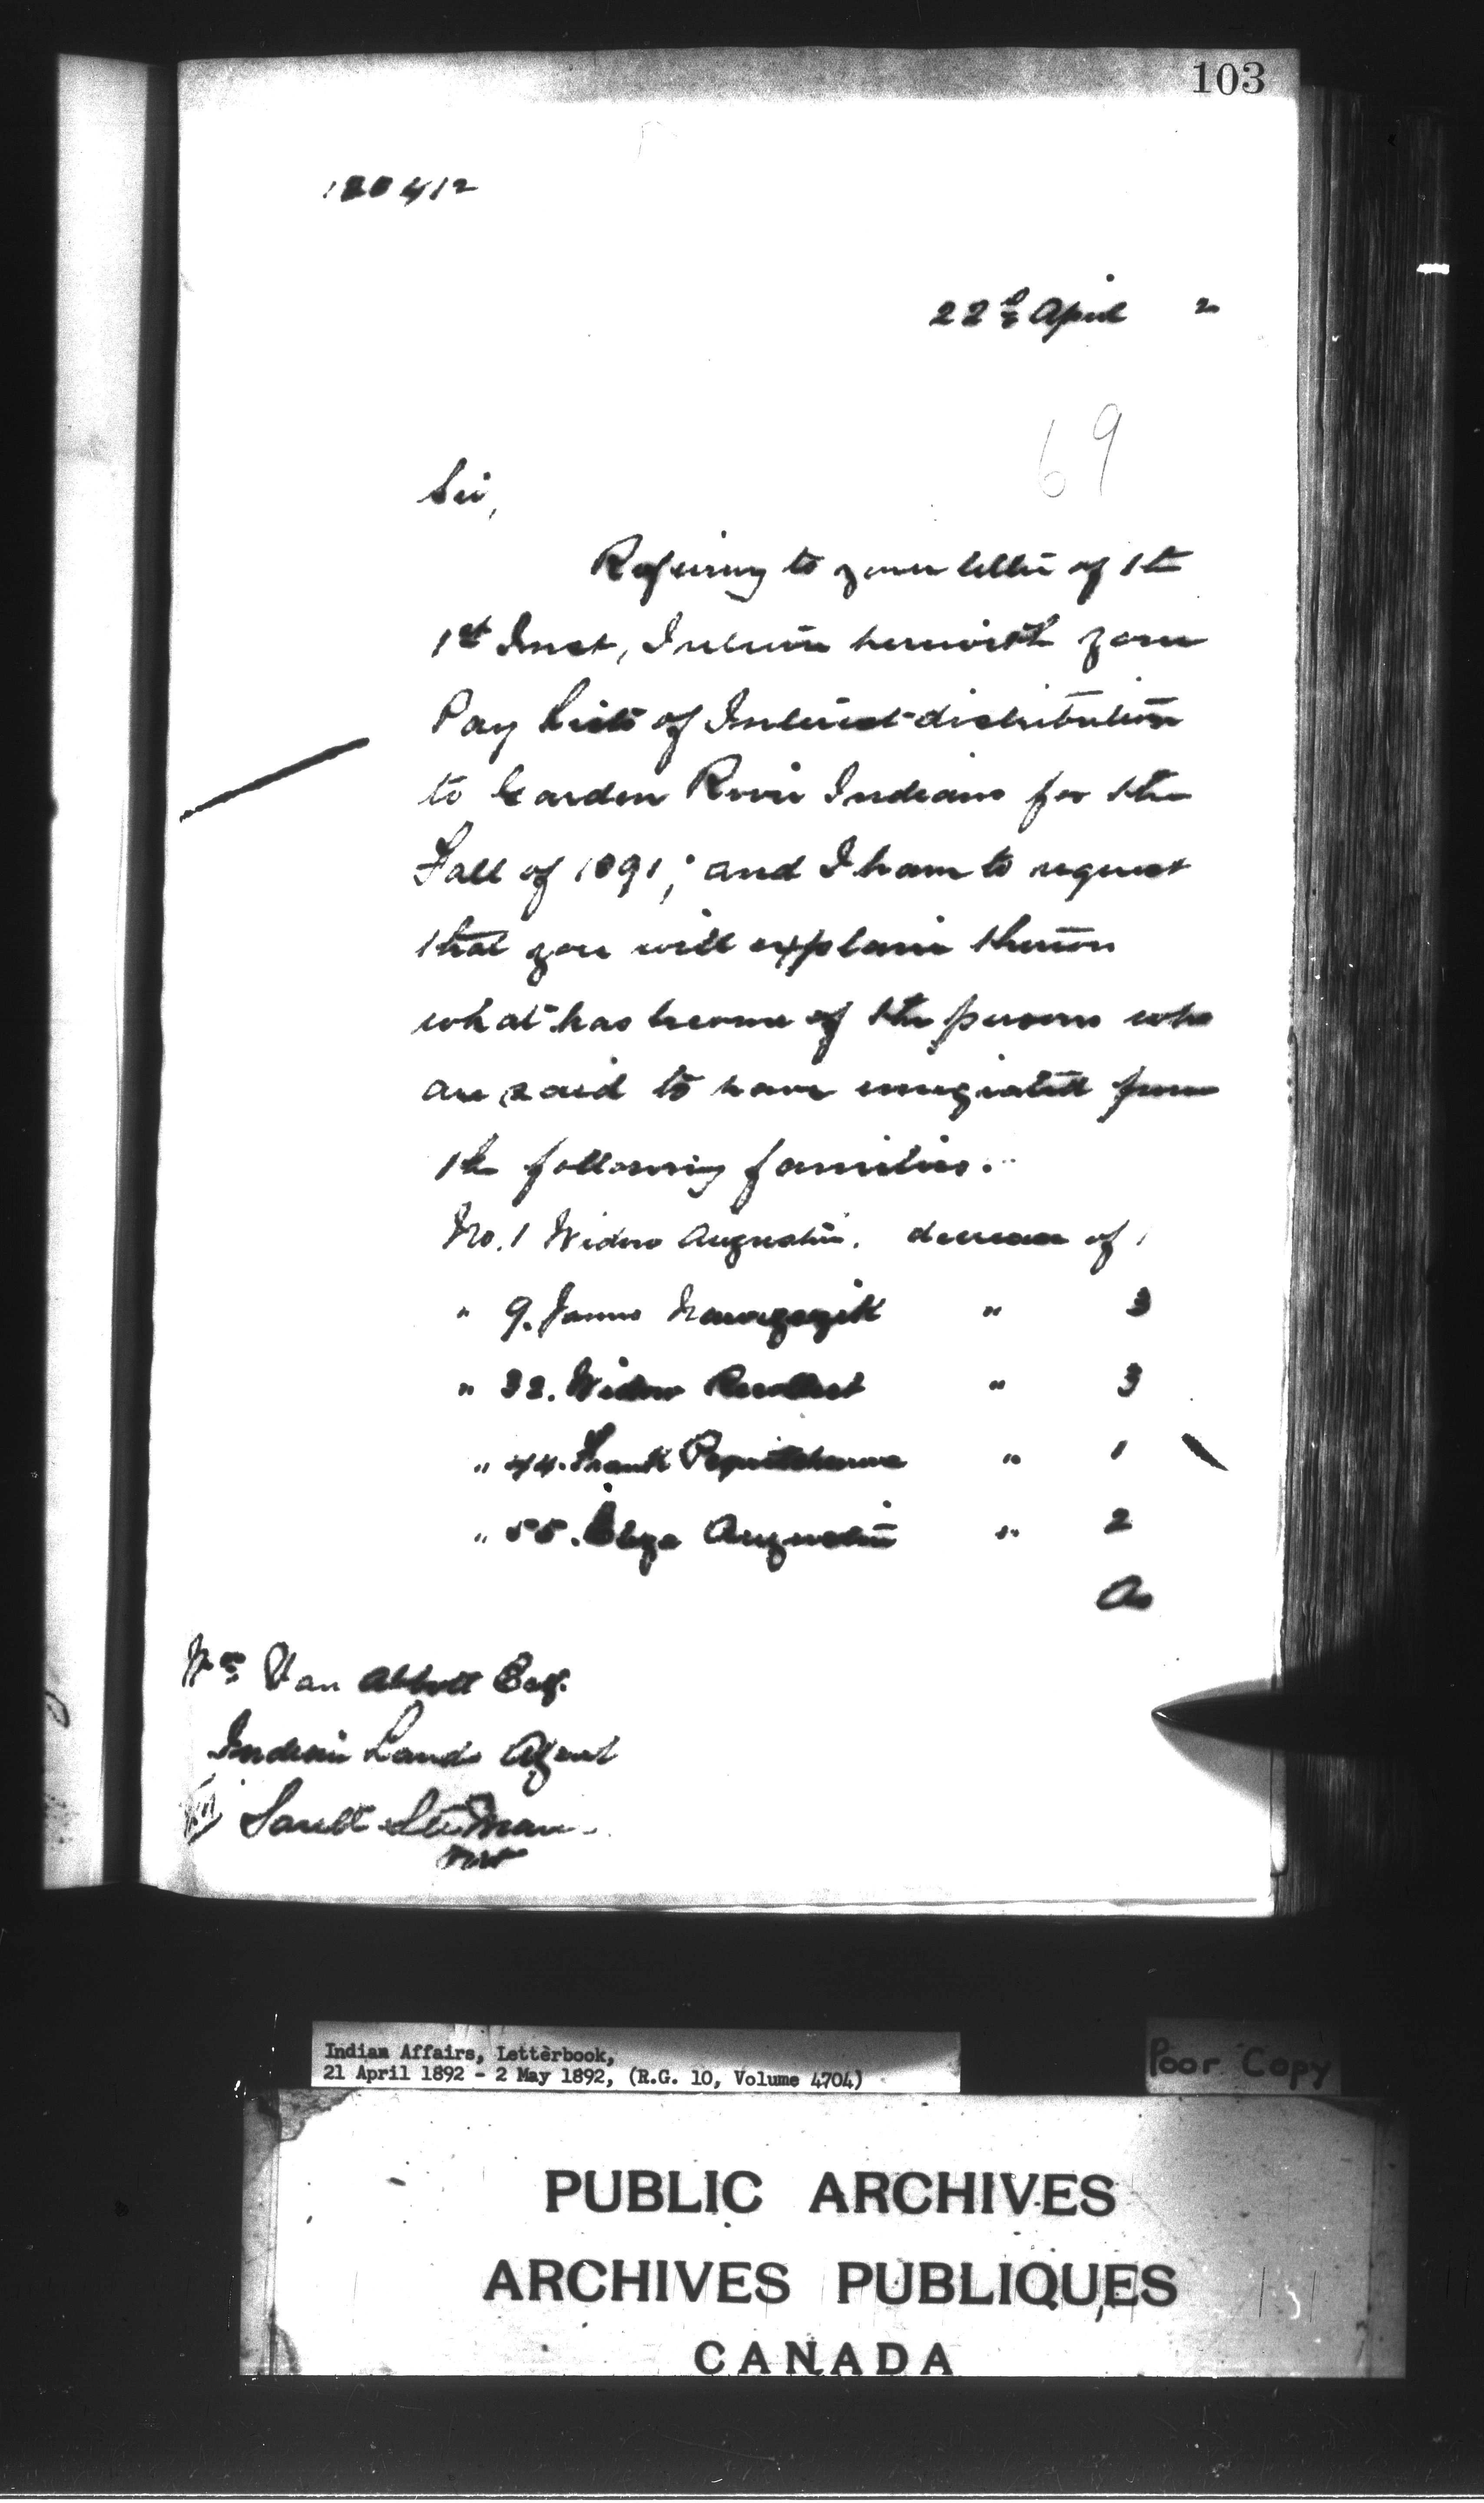 103
120412
22d April 2
69
Sir,
Refering to your letter of the
1st Inst, I return herewith your
Pay List of Interest distribution
to Garden River Indians for the
Fall of 1891; and I have to request
that you will explain thereon
what has become of the persons who
are said to have emigrated from
the following families.
No. 1 Widow Augustin. decrease of 1
" 9. James " 3
" 32. Widow Recollect " 3
" 44. Frank " 1
" 55. Augustin " 2
As
Wm Van Abbott Esq.
Indian Lands Agent
Sault Ste Marie
Ont
Indian Affairs, Letterbook,
21 April 1892 - 2 May 1892, (R.G. 10, Volume 4704)
Poor Copy
PUBLIC ARCHIVES
ARCHIVES PUBLIQUES
CANADA